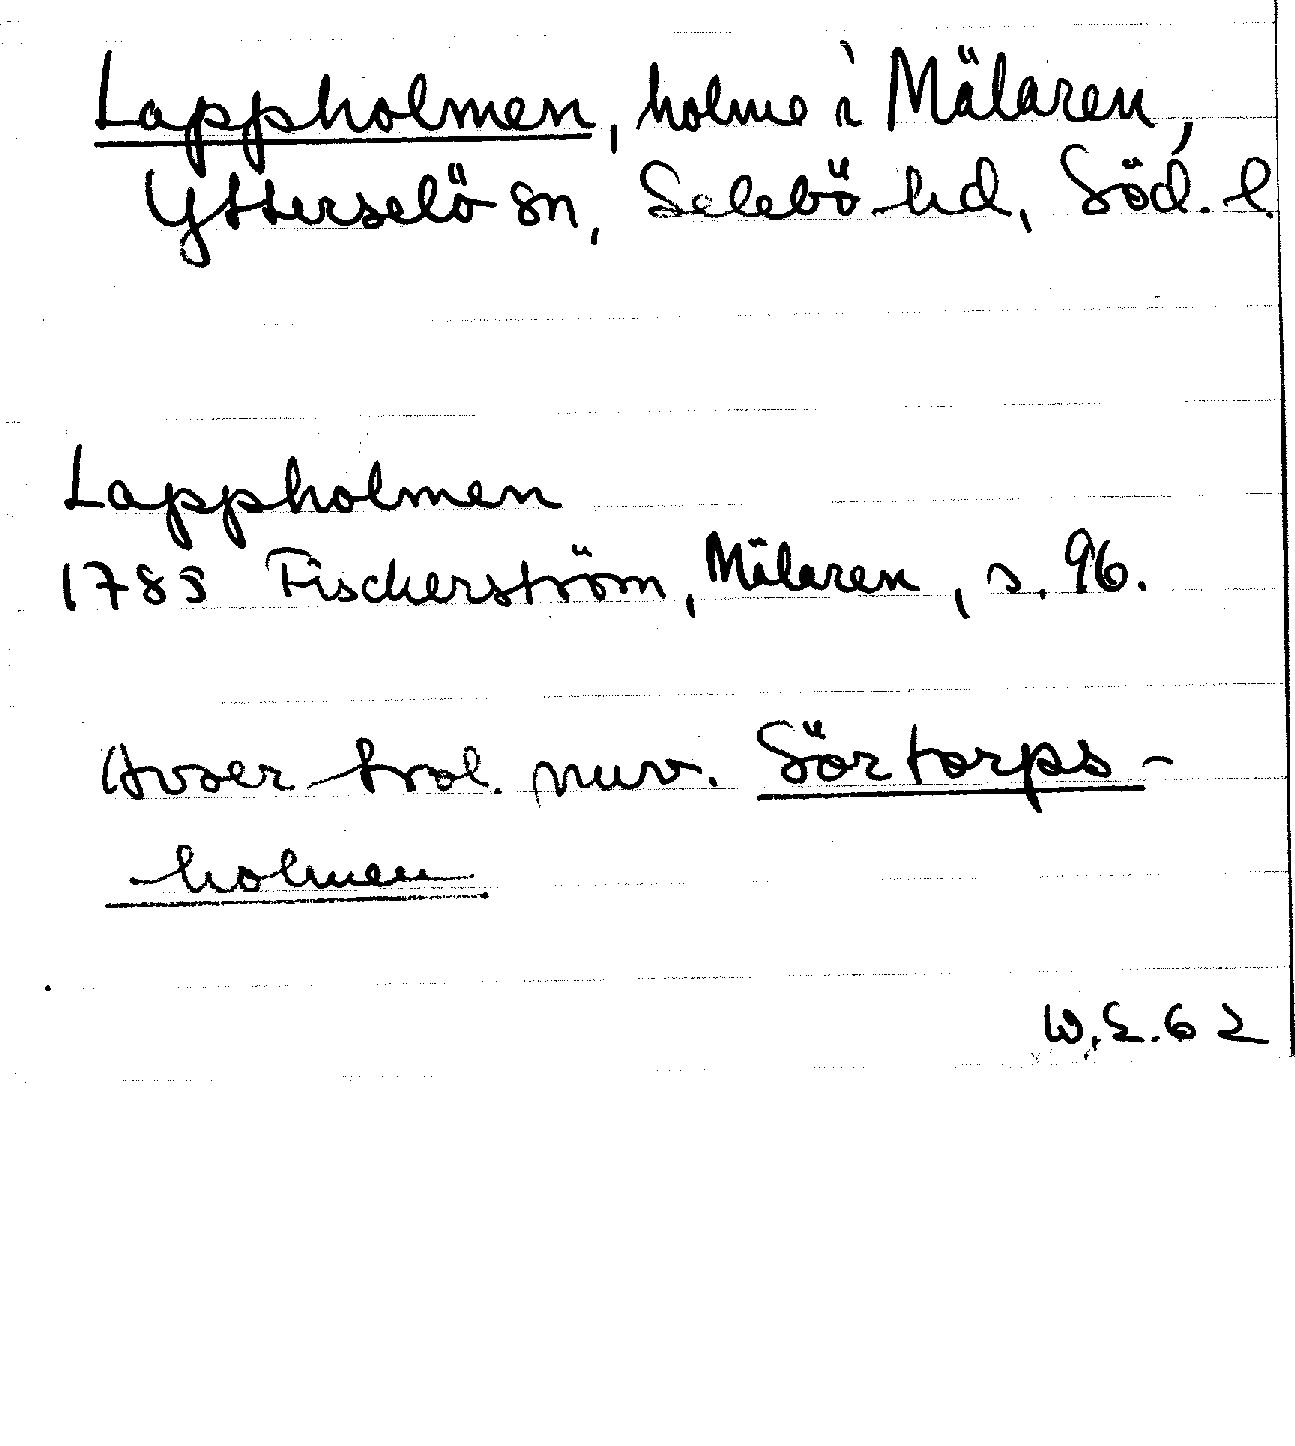 Lappholmen, holme i Mälaren,
Ytterselö sn, Selebö hd, Söd. l.
Lappholmen
1785 Fischerström, Mälaren, s. 96.
Avser trol. nuv. Sörtorps-
holmen
W.E. 62